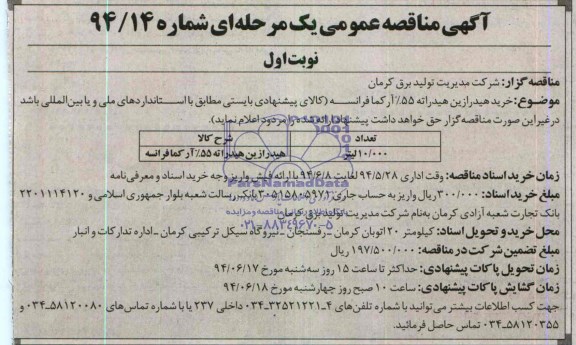 آگهی مناقصه عمومی یک مرحله‌ای شماره ۹۴/۱۴
نوبت اول
مناقصه گزار: شرکت مدیریت تولید برق کرمان
موضوع: خرید هیدرازین هیدراته ۵۵٪ آرکما فرانسه (کالای پیشنهادی بایستی مطابق با استانداردهای ملی و یا بین المللی باشد
در غیر این صورت مناقصه گزار حق خواهد داشت پیشنهاد ارائه شده را مردود اعلام نماید).
شرح کالا تعداد
هیدرازین هیدراته ۵۵٪ آرکما فرانسه ۱۰/۰۰۰ لیتر
زمان خرید اسناد مناقصه: وقت اداری ۹۴/۵/۲۸ لغایت ۹۴/۶/۸ با ارائه فیش واریز وجه خرید اسناد و معرفی نامه
مبلغ خرید اسناد: ۳۰۰/۰۰۰ ریال واریز به حساب جاری بانک رسالت شعبه بلوار جمهوری اسلامی و ۲۲۰۱۱۱۴۱۲۰
بانک تجارت شعبه آزادی کرمان به نام شرکت مدیریت تولید برق کرمان
محل خرید و تحویل اسناد: کیلومتر ۲۰ اتوبان کرمان - رفسنجان - نیروگاه سیکل ترکیبی کرمان - اداره تدارکات و انبار
مبلغ تضمین شرکت در مناقصه: ۱۹۷/۵۰۰/۰۰۰ ریال
زمان تحویل پاکات پیشنهادی: حداکثر تا ساعت ۱۵ روز سه شنبه مورخ ۹۴/۰۶/۱۷
زمان گشایش پاکات پیشنهادی: ساعت ۱۰ صبح روز چهارشنبه مورخ ۹۴/۰۶/۱۸
جهت کسب اطلاعات بیشتر می توانید با شماره تلفن های ۴-۳۲۵۲۱۲۲۱-۰۳۴ داخلی ۲۳۷ یا با شماره تماس های ۵۸۱۲۰۰۸۰-۰۳۴ و
۵۸۱۲۰۳۵۵-۰۳۴ تماس حاصل فرمائید.
ParsNamadData
۰۲۱-۸۸۳۴۹۶۷۰-۵